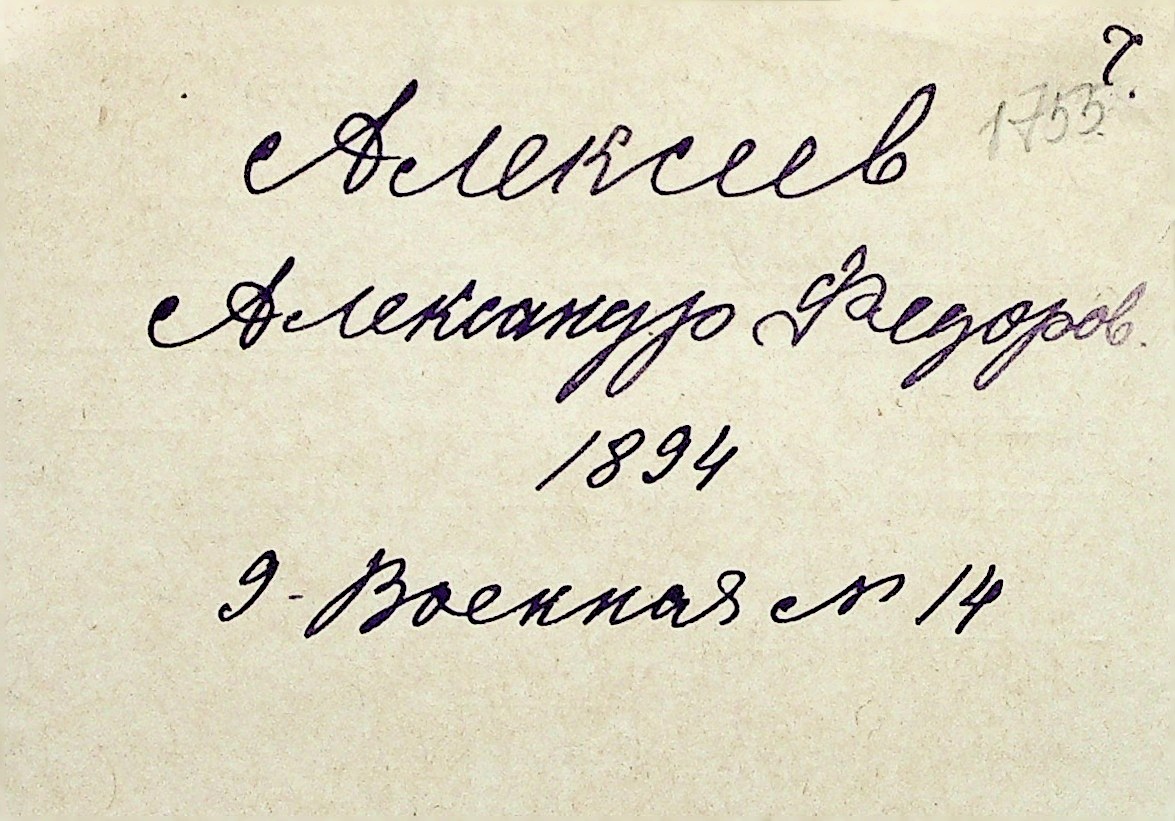 7.
1753
Алексеев
Александр Федоров.
1894
9-Военная № 14